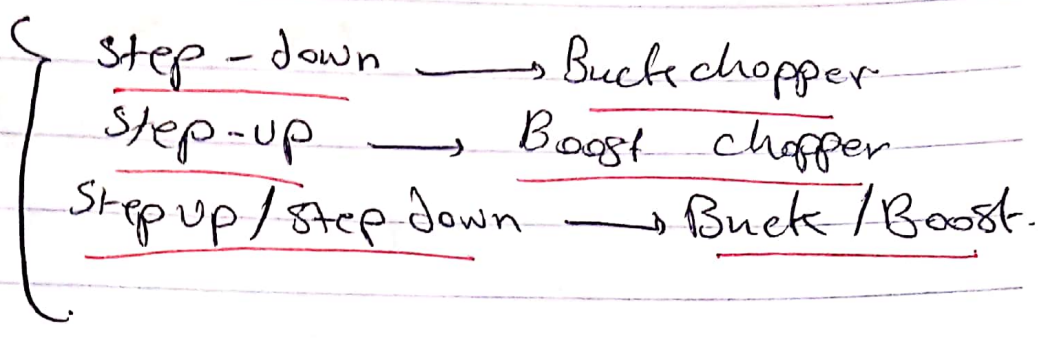 Step-down → Buck chopper
Step-up → Boost chopper
Step up/step down → Buck/Boost.